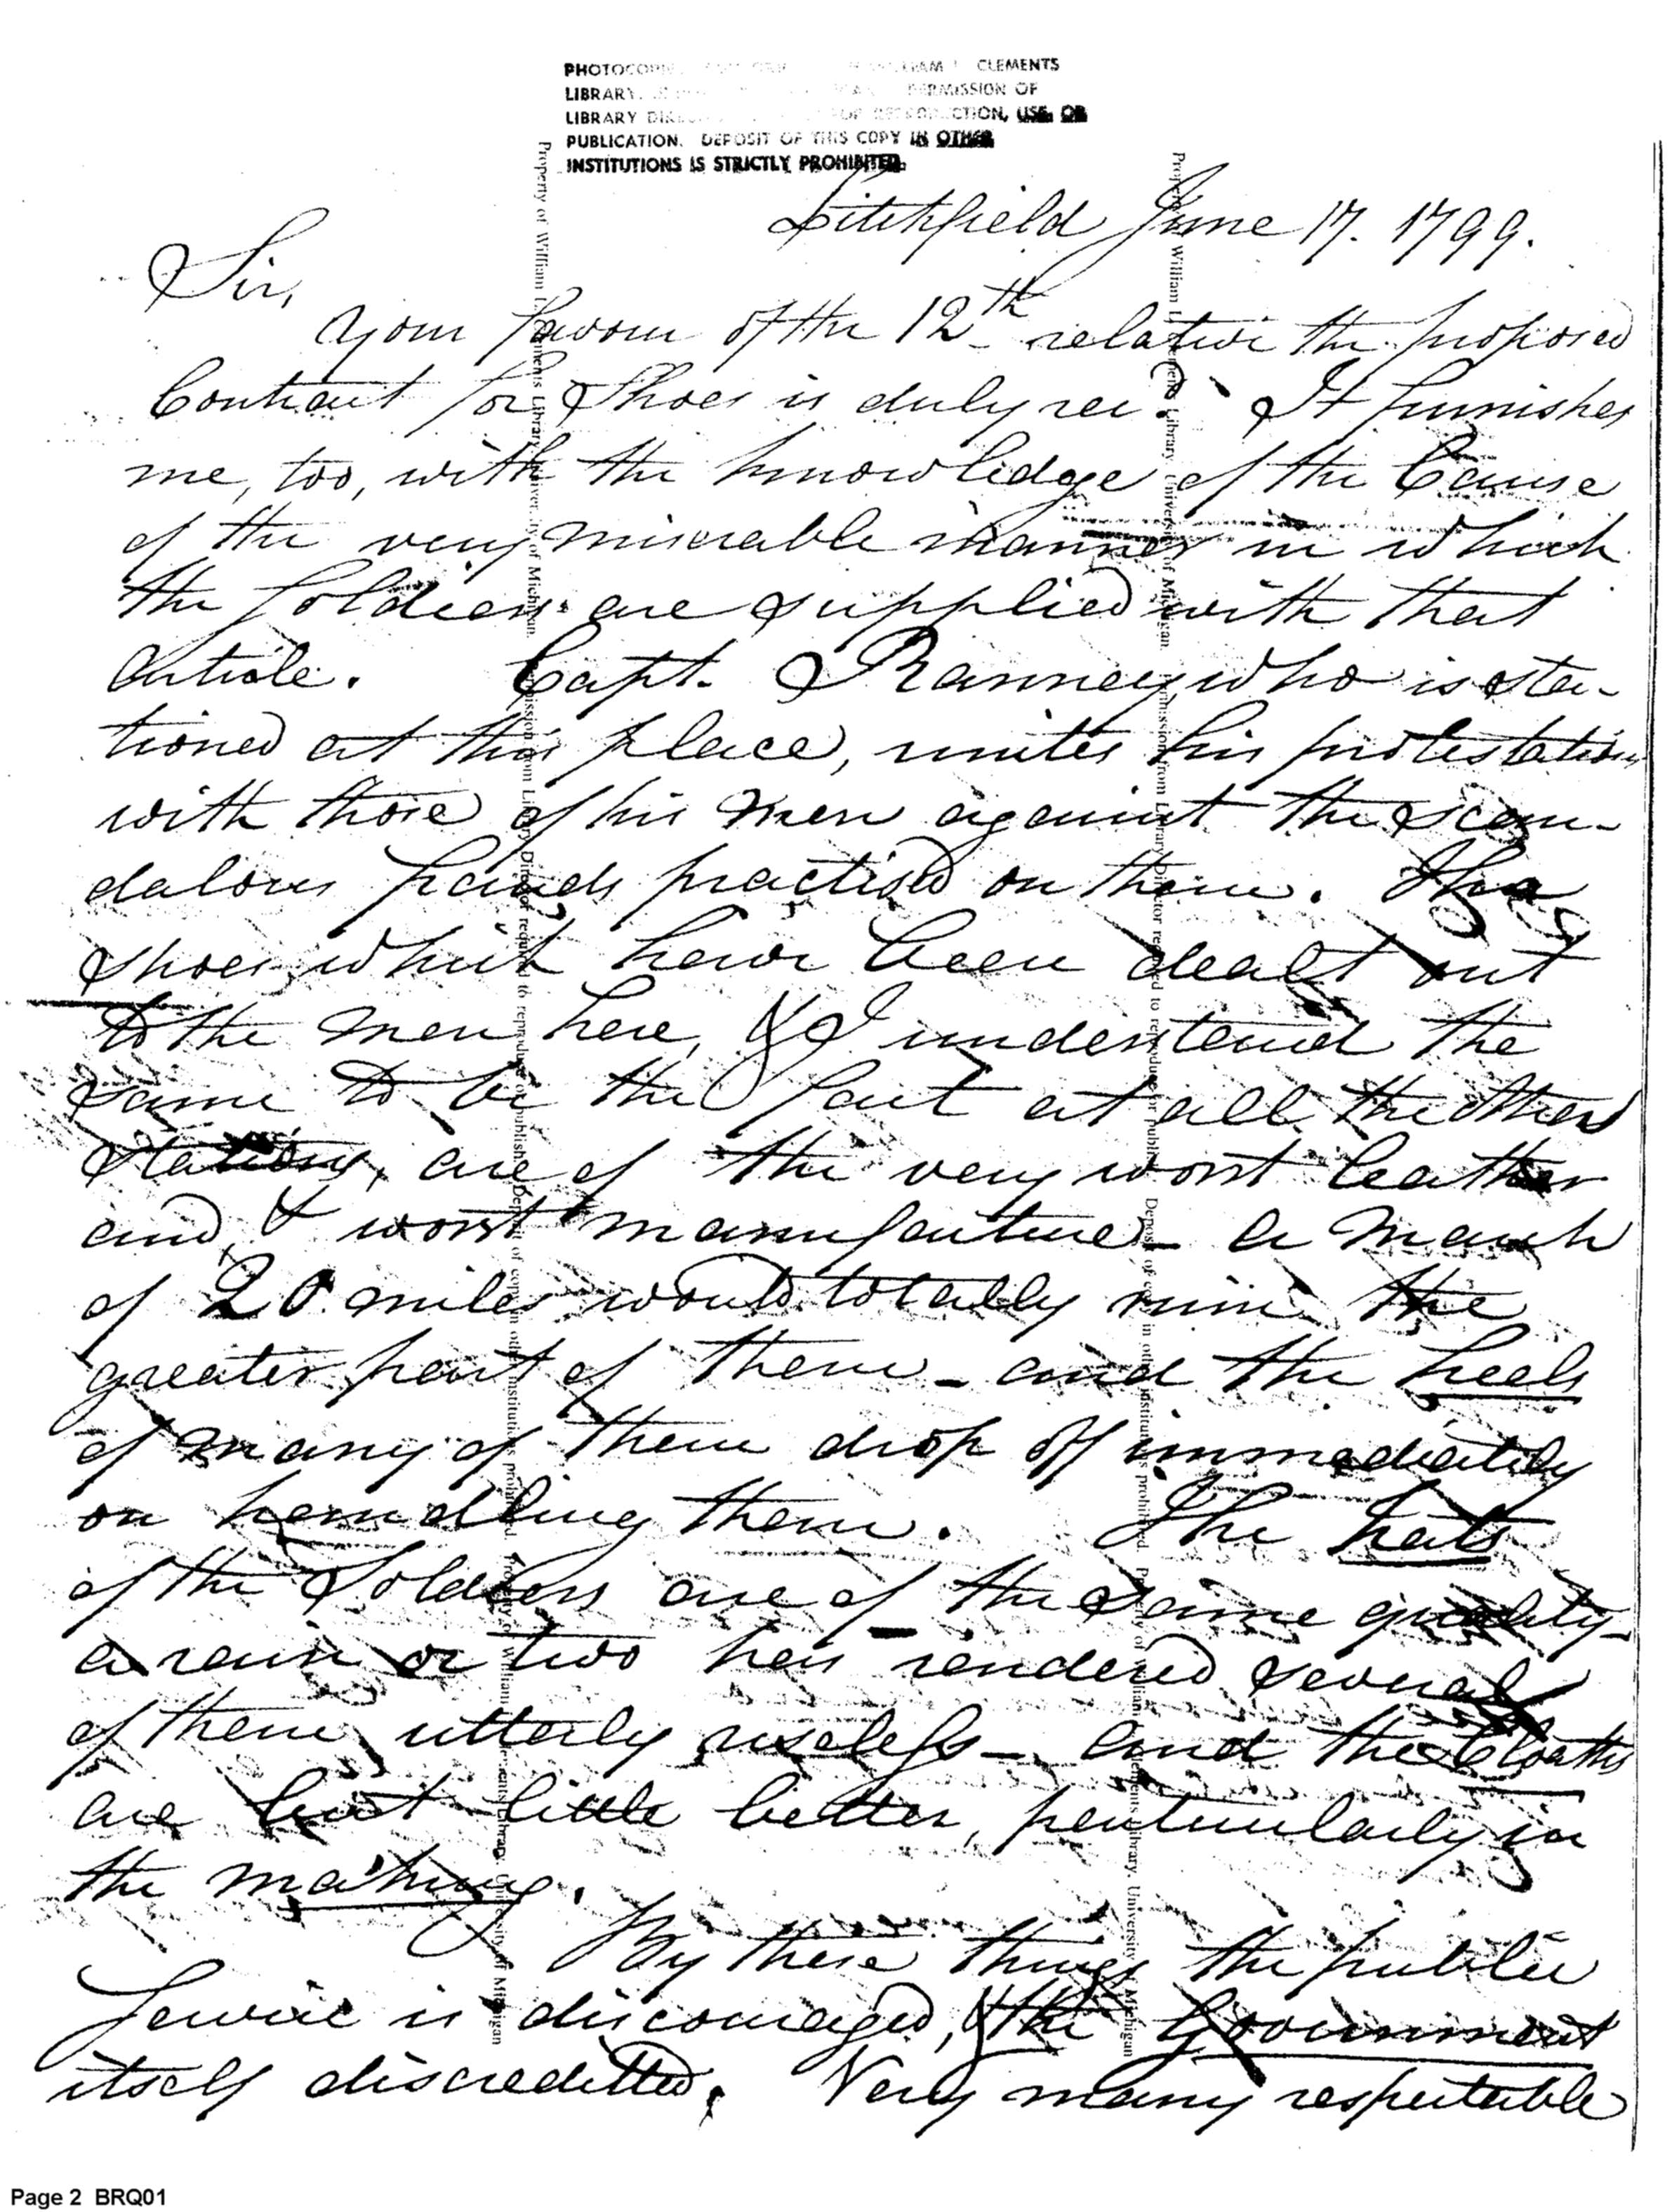 PHOTOCOPIED CLEMENTS
LIBRARY, PERMISSION OF
LIBRARY FOR REPRODUCTION, USE, OR
PUBLICATION. DEPOSIT OF THIS COPY IN OTHER
INSTITUTIONS IS STRICTLY PROHIBITED.
Litchfield June 17. 1799.
Sir,
Your favour of the 12th relative the proposed
Contract for Shoes is duly rec. It furnishes
me, too, with the knowledge of the Cause
of the very miserable manner in which
the Soldiers are supplied with that
Article. Capt. Ranney who is sta-
tioned at this place, unites his protestations
with those of his Men against the scan-
dalous frauds practised on them. The
Shoes which have been dealt out
to the Men here, & I understand the
same to be the fact at all the other
Stations, are of the very worst leather
and & worst manufacture - a march
of 20 miles would totally ruin the
greater part of them - and the heels
of many of them drop off immediately
on handling them. The hats
of the Soldiers are of the same quality -
a rain or two has rendered several
of them utterly useless - and the Cloaths
are but little better, particularly in
the making.
By these things the public
Service is discouraged, & the Government
itself discreditted. Very many respectable
Property of William L. Clements Library, University of Michigan. Permission from Library Director required to reproduce or publish. Deposit of copy in other institutions prohibited. Property of William L. Clements Library, University of Michigan
Property of William L. Clements Library, University of Michigan. Permission from Library Director required to reproduce or publish. Deposit of copy in other institutions prohibited. Property of William L. Clements Library, University of Michigan
Page 2 BRQ01